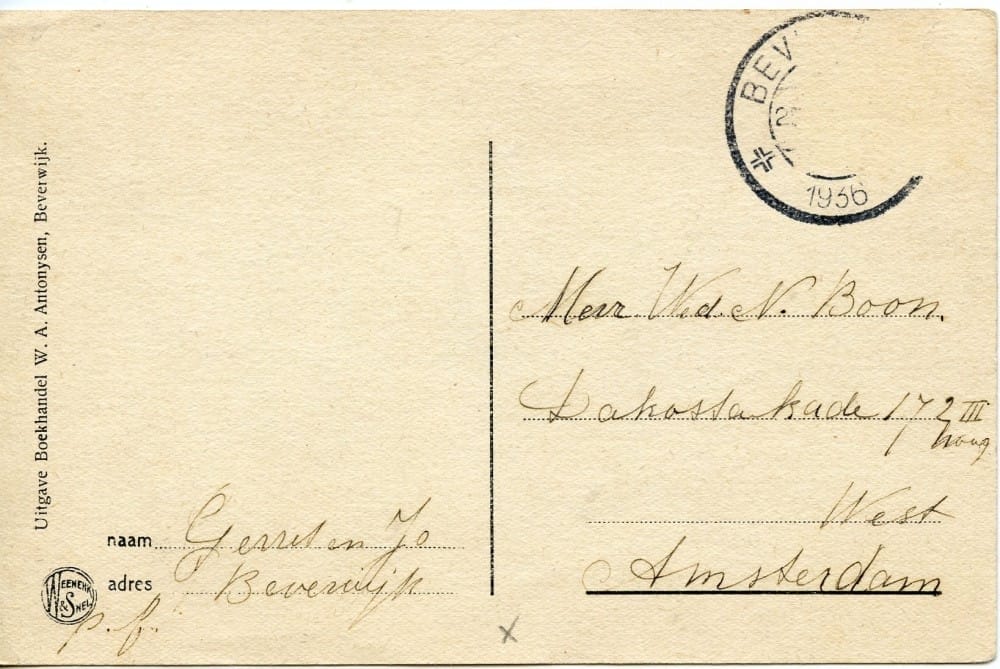 Uitgave Boekhandel W. A. Antonysen, Beverwijk.
BEV
1936
Mevr. Wed. N. Boon.
Dakostakade 172 III
hoog
West
Amsterdam
naam Gerrit en Jo
adres Beverwijk
WEENENK & SNEL
p. f.